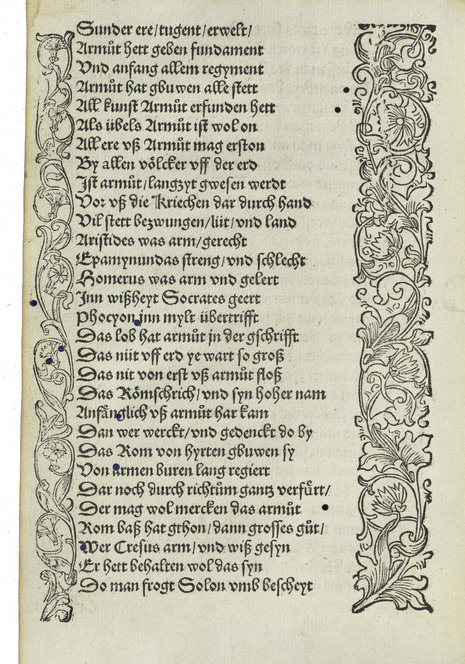 Sunder ere/tugent/erwelt/
Armůt hett geben fundament
Vnd anfang allem regyment
Armůt hat gbuwen alle stett
All kunst Armůt erfunden hett
Als übels Armůt ist wol on
All ere vß Armůt mag erston
By allen völcker vff der erd
Ist armůt/langzyt gwesen werdt
Vor vß die Kriechen dar durch hand
Vil stett bezwungen/lüt/vnd land
Aristides was arm/gerecht
Epamynundas streng/vnd schlecht
Homerus was arm vnd gelert
Inn wißheyt Socrates geert
Phocyon inn mylt übertrifft
Das lob hat armůt in der gschrifft
Das nüt vff erd ye wart so groß
Das nit von erst vß armůt floß
Das Römschrich/vnd syn hoher nam
Anfänglich vß armůt har kam
Dan wer werckt/vnd gedenckt do by
Das Rom von hyrten gbuwen sy
Von armen buren lang regiert
Dar noch durch richtům gantz verfürt/
Der mag wol mercken das armůt
Rom baß hat gthon/dann grosses gůt/
Wer Cresus arm/vnd wiß gesyn
Er hett behalten wol das syn
Do man frogt Solon vmb bescheyt